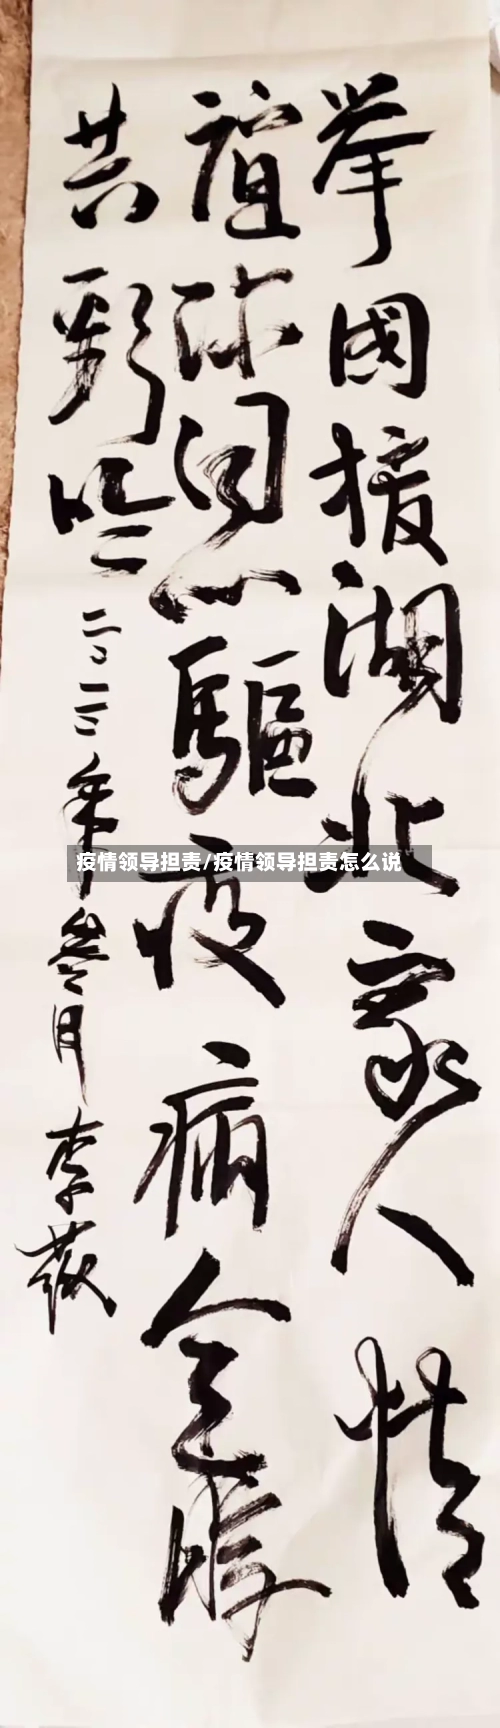 舉國援湖北家人情
誼深同心驅疫病全勝
共歡吟
二〇二〇年叁月李薇
疫情领导担责/疫情领导担责怎么说